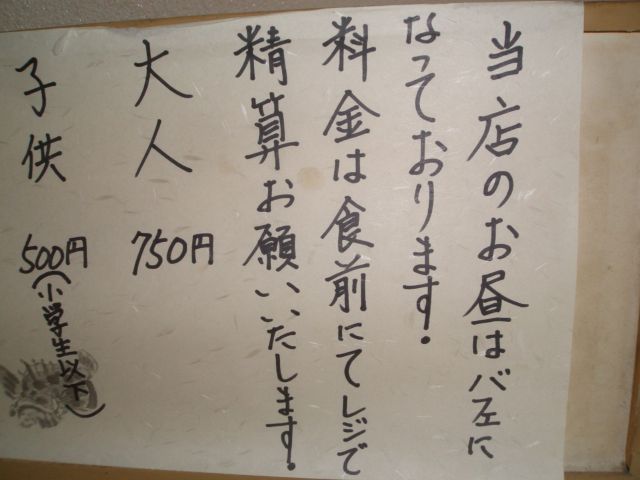 当店のお昼はバ左に
なっております.
料金は食前にてレジで
精算お願いいたします.
大人 750円
子供 500円(小学生以下)